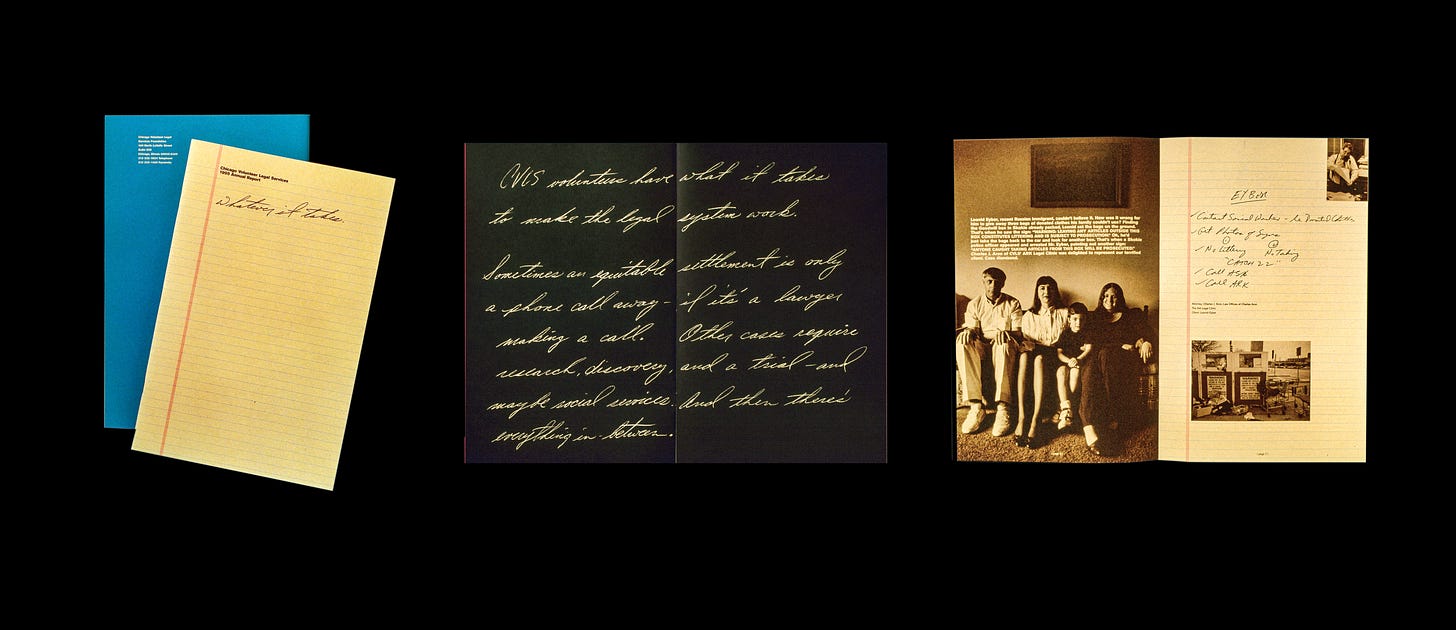 Chicago Volunteer Legal
Services Foundation
Chicago Volunteer Legal Services
1995 Annual Report
Whatever it takes.
CVLS volunteers have what it takes
to make the legal system work.
Sometimes an equitable settlement is only
a phone call away – if it's a lawyer
making a call. Other cases require
research, discovery, and a trial – and
maybe social services. And then there's
everything in-between.
Leonid Eybor, recent Russian immigrant, couldn't believe it. How was it wrong for
him to give away three bags of donated clothes his family couldn't use? Finding
the Goodwill box in Skokie already packed, Leonid set the bags on the ground.
That's when he saw the sign: "WARNING: LEAVING ANY ARTICLES OUTSIDE THIS
BOX CONSTITUTES LITTERING AND IS SUBJECT TO PROSECUTION!" Ok, he'd
just take the bags back to the car and look for another box. That's when a Skokie
police officer appeared and arrested Mr. Eybor, pointing out another sign:
"ANYONE CAUGHT TAKING ARTICLES FROM THIS BOX WILL BE PROSECUTED!"
Charles J. Aron of CVLS' ARK Legal Clinic was delighted to represent our terrified
client. Case dismissed.
EYBOR
Contact Social Worker – re Donated Clothes
Get Photos of Signs
① ②
No Littering No Taking
"CATCH 22"
Call ASA
Call ARK
Attorney: Charles J. Aron, Law Offices of Charles Aron
The Ark Legal Clinic
Client: Leonid Eybor